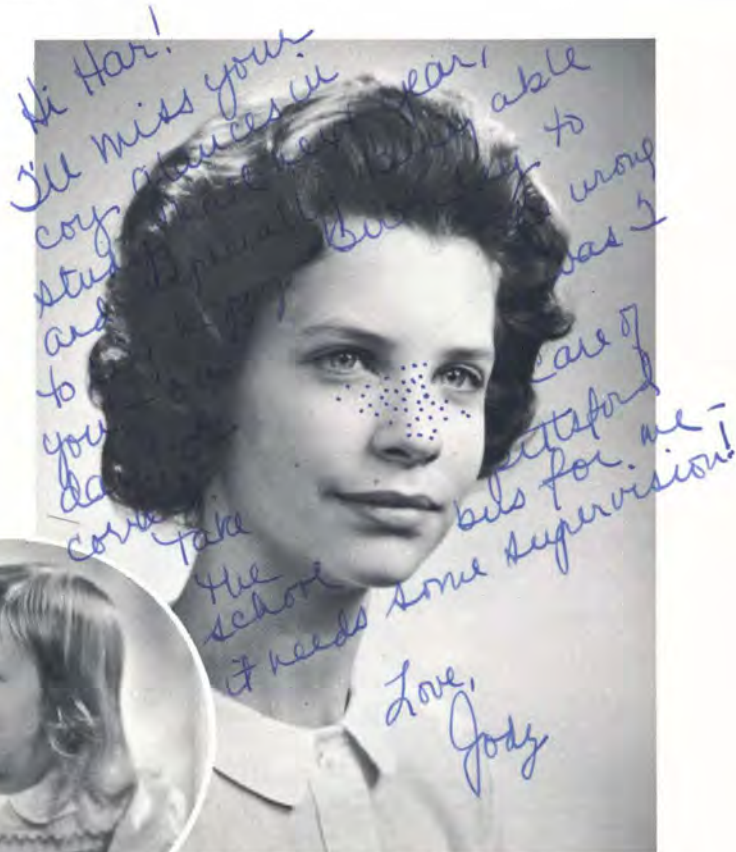 Hi Har!
I'll miss your
coy glances in
stud next year,
and especially being able
to to
you wrong
da was I
corre
Take care of
the Pittsford
school bus for me -
it needs some supervision!
Love,
Jody